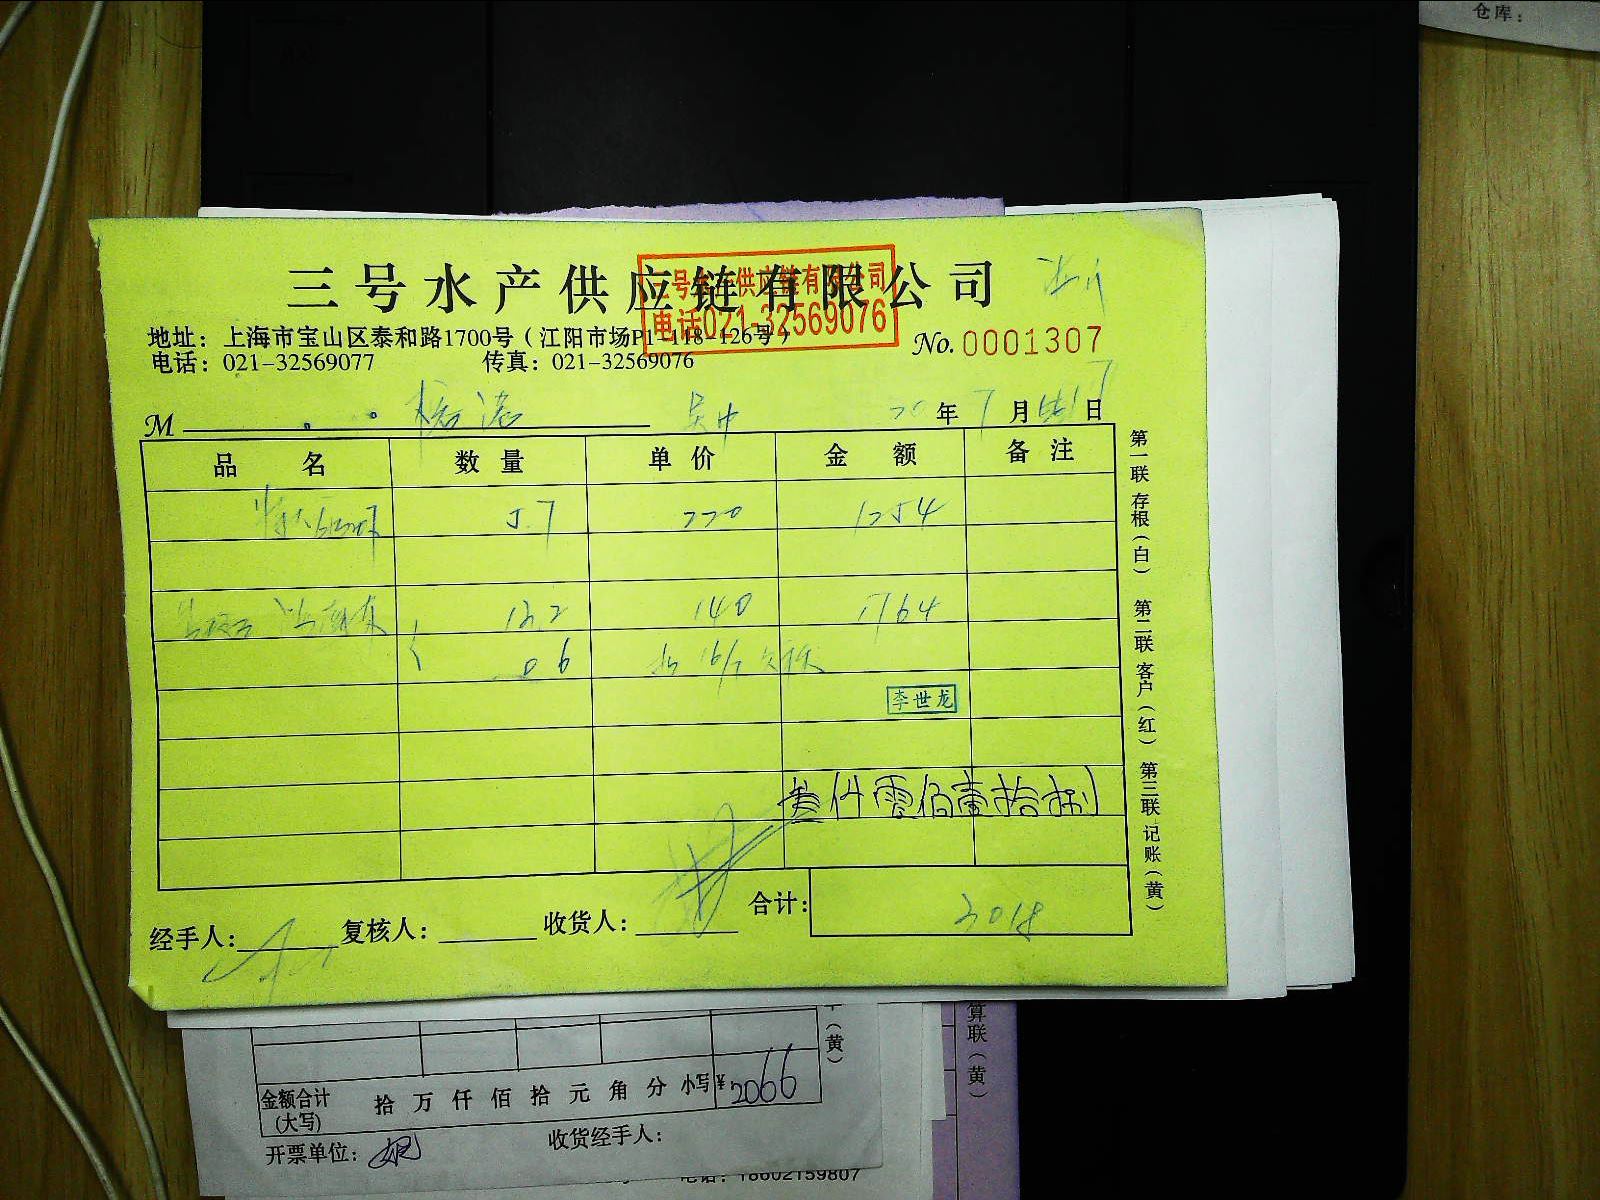 仓库：
三号水产供应链有限公司
三号水产供应链有限公司
电话021-32569076
地址：上海市宝山区泰和路1700号（江阳市场P1-118-126号）
No. 0001307
电话：021-32569077 传真：021-32569076
M
20年7月17日
品名 数量 单价 金额 备注
5.7 220 1254
13.2 140 1764
0.6
李世龙
叁仟零佰壹拾捌
合计：3018
经手人： 复核人： 收货人：
第一联 存根（白） 第二联 客户（红） 第三联 记账（黄）
（黄）
算联（黄）
金额合计（大写） 拾万仟佰拾元角分 小写¥2066
开票单位： 收货经手人：
电话：18602159807